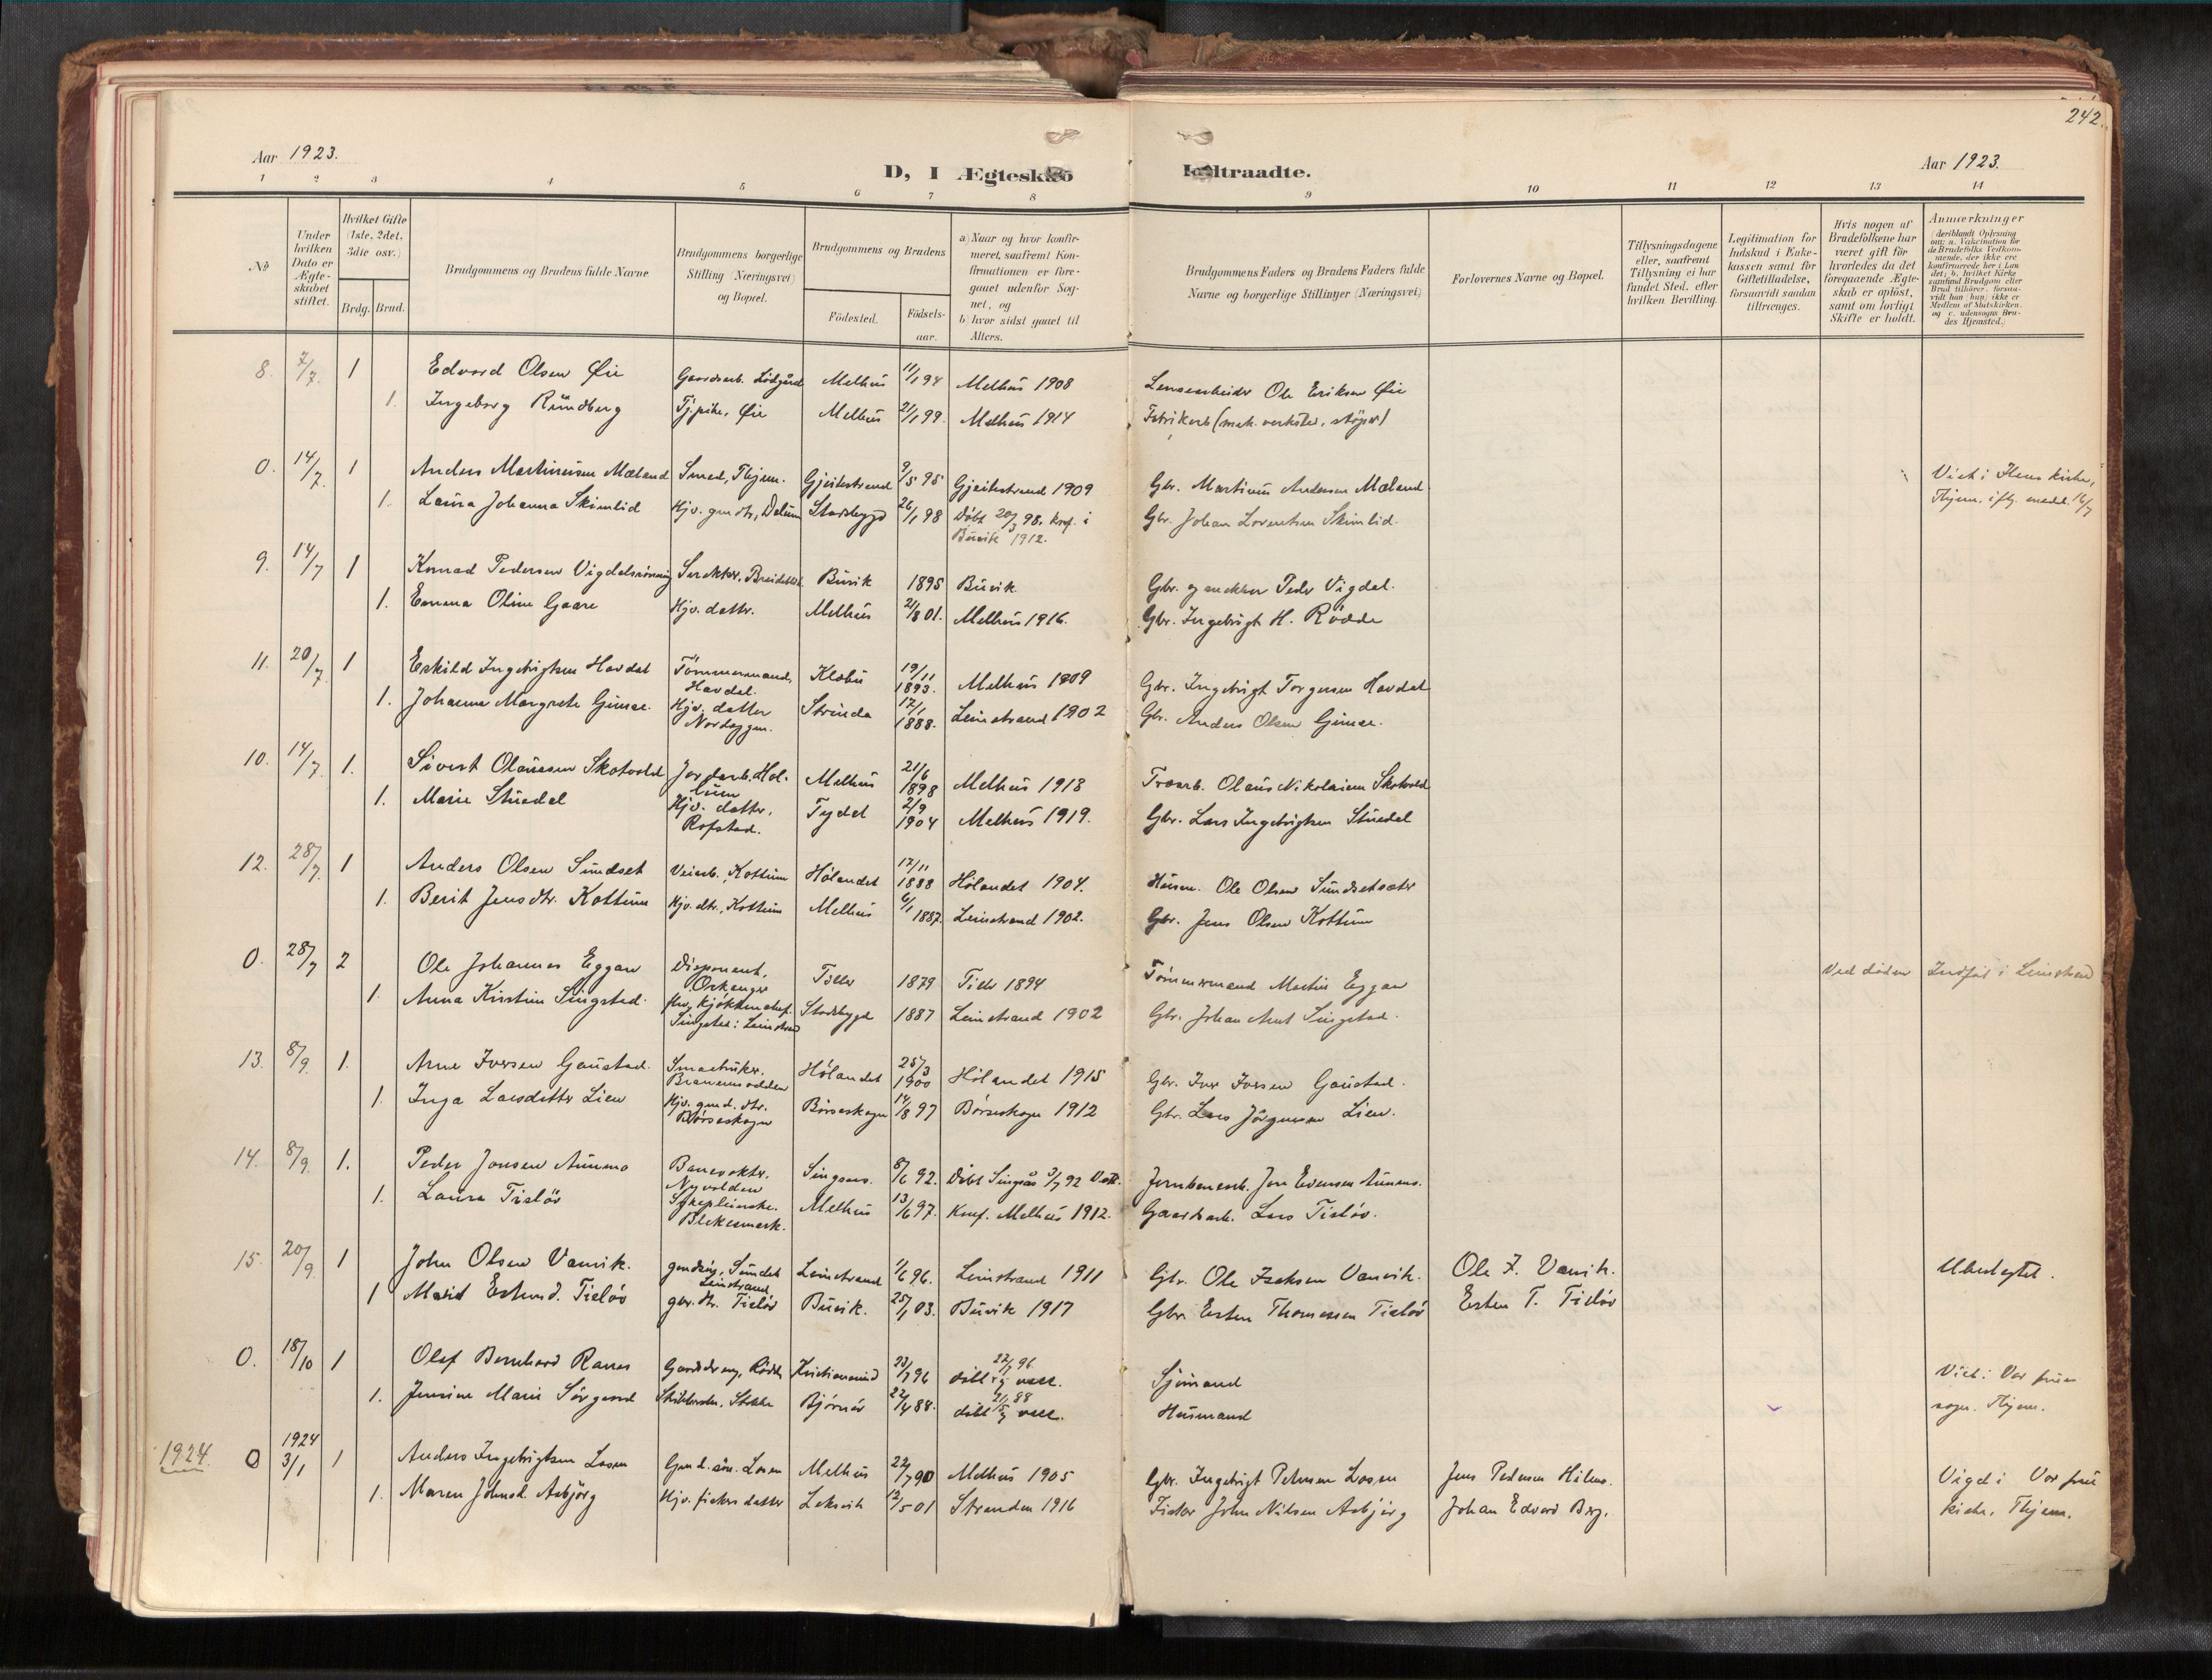 242.
Aar 1923.
D, I Ægteskab Indtraadte.
Aar 1923.
1 2 3 4 5 6 7 8 9 10 11 12 13 14
No
Under hvilken Dato er Ægteskabet stiftet.
Hvilket Gifte (1ste, 2det, 3die osv.)
Brdg. Brud.
Brudgommens og Brudens fulde Navne
Brudgommens borgerlige Stilling (Næringsvei) og Bopæl.
Brudgommens og Brudens
Födested.
Födselsaar.
a) Naar og hvor konfirmeret, saafremt Konfirmationen er foregaaet udenfor Sognet, og
b) hvor sidst gaaet til Alters.
Brudgommens Faders og Brudens Faders fulde Navne og borgerlige Stillinger (Næringsvei)
Forlovernes Navne og Bopæl.
Tillysningsdagene eller, saafremt Tillysning ei har fundet Sted, efter hvilken Bevilling.
Legitimation for Indskud i Enkekassen samt for Giftetilladelse, forsaavidt saadan tiltrænges.
Hvis nogen af Brudefolkene har været gift för hvorledes da det foregaaende Ægteskab er oplöst, samt om lovligt Skifte er holdt.
Anmærkninger (deriblandt Oplysning om: a. Vakcination for de Brudefolks Vedkommende, der ikke ere konfirmerede her i Landet; b. hvilket Kirkesamfund Brudgom eller Brud tilhörer, forsaavidt han (hun) ikke er Medlem af Statskirken, og c. udensogns Brudes Hjemsted.)
8. 7/7. 1 Edvard Olsen Øie Gaardsarb. Melhus 11/1 94 Melhus 1908 Ole Eriksen Øie
1. Ingeborg Rundberg Tj.pike, Øie Melhus 21/1 99. Melhus 1914 (mek. verksted, støper)
0. 14/7. 1 Anders Martinusen Mæland Smed, Thjem. Gjeitastrand 9/5 95 Gjeitastrand 1909 Gbr. Martinus Andersen Mæland Viet i Ilens kirke,
1. Laura Johanna Skimlid Hjv. gmdtr, Stadsbygd 26/1 98 Døbt 20/3 98. Konf. i Gbr. Johan Lorentsen Skimlid. Thjem. iflg. medd. 16/7
Buvik 1912.
9. 14/7 1 Konrad Pedersen Vigdalsrønning Snekker, Buvik 1895 Buvik Gbr. og snekker Peder Vigdal.
1. Emma Oline Gaare Hjv. datter. Melhus 21/8 01. Melhus 1916. Gbr. Ingebrigt H. Rødde
11. 20/7. 1 Eskild Ingebrigtsen Havdal Tømmermand, Havdal. Klæbu 19/11 1893. Melhus 1909 Gbr. Ingebrigt Torgersen Havdal
1. Johanna Margrete Gimse. Hjv. datter Nordeggen. Strinda 17/1 1888. Leinstrand 1902 Gbr. Anders Olsen Gimse.
10. 14/7. 1. Sivert Olaussen Skotvold Melhus 21/6 1898 Melhus 1913 Olaus Nikolaisen Skotvold
1. Marie Stuedal Hjv. datter, Rofstad. Tydal 2/9 1904 Melhus 1919. Gbr. Lars Ingebrigtsen Stuedal
12. 28/7. 1 Anders Olsen Sundset Veiarb. Kottum Hølandet 17/11 1888 Hølandet 1904. Husm. Ole Olsen Sundsetsæter
1. Berit Jensdtr. Kottum Hjv. dtr., Kottum Melhus 6/1 1887. Leinstrand 1902. Gbr. Jens Olsen Kottum
0. 28/7 2 Ole Johannes Eggan Disponent, Orkanger Tiller 1879 Tiller 1894 Tømmermand Martin Eggan Ved døden Indført i Leinstrand
1. Anna Kirstine Singstad. Singstad i Leinstrand Stadsbygd 1887 Leinstrand 1902 Gbr. Johan Arnt Singstad.
13. 8/9. 1. Arne Iversen Gaustad. Smaabruker. Hølandet 25/3 1900 Hølandet 1915 Gbr. Iver Iversen Gaustad.
1. Inga Larsdatter Lien Hjv. gmd. dtr. Børseskogn Børseskogn 14/8 97 Børseskogn 1912 Gbr. Lars Jørgensen Lien.
14. 8/9. 1. Peder Jonsen Aunmo Banevokter. Nyvolden Singsaas. 8/6 92. Døbt Singsås 3/7 92 Jernbanearb. Jon Evensen Aunmo.
1. Laura Tisløv Melhus 13/6 97. Konf. Melhus 1912. Gaardsarb. Lars Tisløv.
15. 20/9. 1 John Olsen Vanvik. Sundet Leinstrand Leinstrand 1/6 96. Leinstrand 1911 Gbr. Ole Isaksen Vanvik. Ole I. Vanvik. Ubeslegtet.
1 Marit Estensd. Tisløv gbr. dtr. Tisløv Buvik. 25/1 03. Buvik 1917 Gbr. Esten Thomassen Tisløv Esten T. Tisløv
0. 18/10 1 Olaf Bernhard Ranes Gaardsdreng, Rødde Kristiansund 23/1 96 døbt og vacc. Sjømand Viet i Vor frue
1. Jensine Marie Sørgaard Bjørnør 22/4 88. døbt og vacc. Husmand sogn. Thjem.
1924. 0 1924 3/1 1 Anders Ingebrigtsen Losen Gmd. søn. Losen Melhus 22/7 90 Melhus 1905 Gbr. Ingebrigt Pedersen Losen Jens Pedersen Viged i Vor frue
1. Maren Johnsd. Asbjørg Hjv. fiskersdatter Leksvik 12/5 01 Stranden 1916 Fisker John Nilsen Asbjørg Johan Edvard Berg. kirke, Thjem.